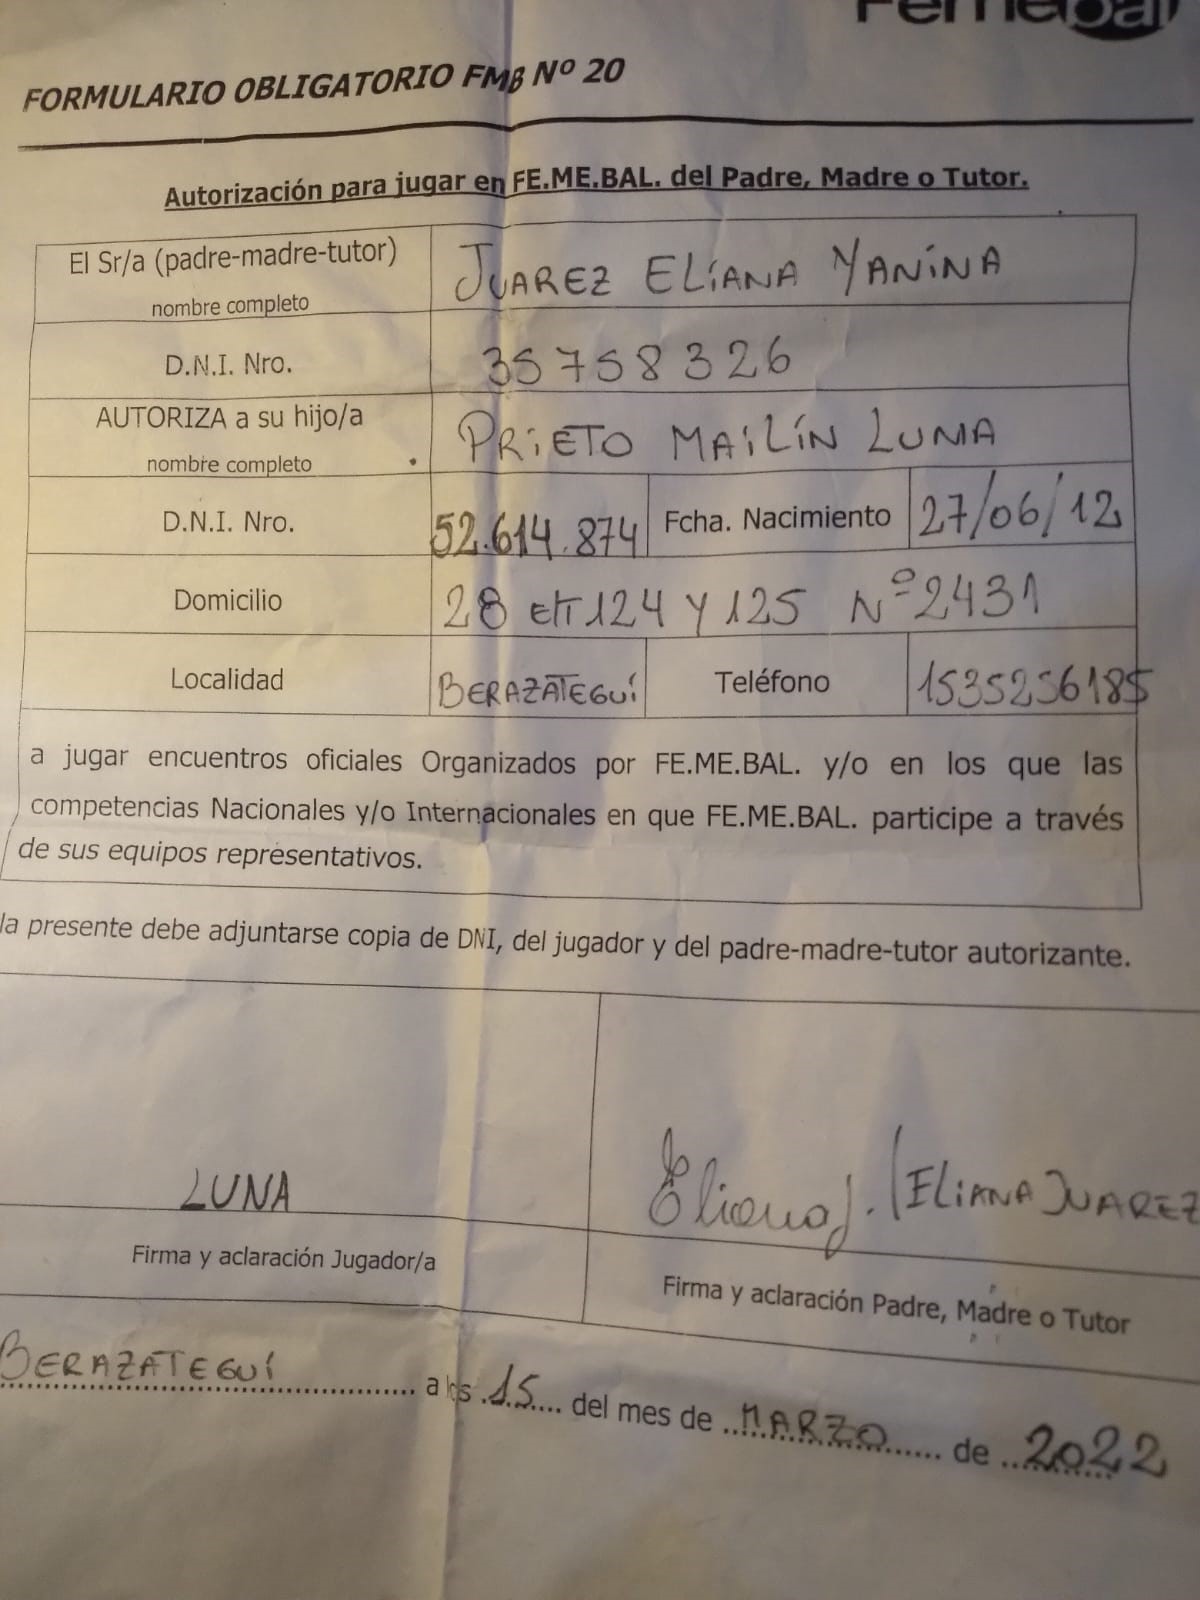 Femebal
FORMULARIO OBLIGATORIO FMB Nº 20
Autorización para jugar en FE.ME.BAL. del Padre, Madre o Tutor.
El Sr/a (padre-madre-tutor) JUAREZ ELIANA YANINA
nombre completo
D.N.I. Nro. 35758326
AUTORIZA a su hijo/a PRIETO MAILÍN LUNA
nombre completo
D.N.I. Nro. 52.614.874 Fcha. Nacimiento 27/06/12
Domicilio 28 e/ 124 Y 125 Nº 2431
Localidad BERAZATEGUI Teléfono 1535256185
a jugar encuentros oficiales Organizados por FE.ME.BAL. y/o en los que las
competencias Nacionales y/o Internacionales en que FE.ME.BAL. participe a través
de sus equipos representativos.
la presente debe adjuntarse copia de DNI, del jugador y del padre-madre-tutor autorizante.
LUNA Eliana J. (ELIANA JUAREZ
Firma y aclaración Jugador/a Firma y aclaración Padre, Madre o Tutor
BERAZATEGUI a los 15 del mes de MARZO de 2022